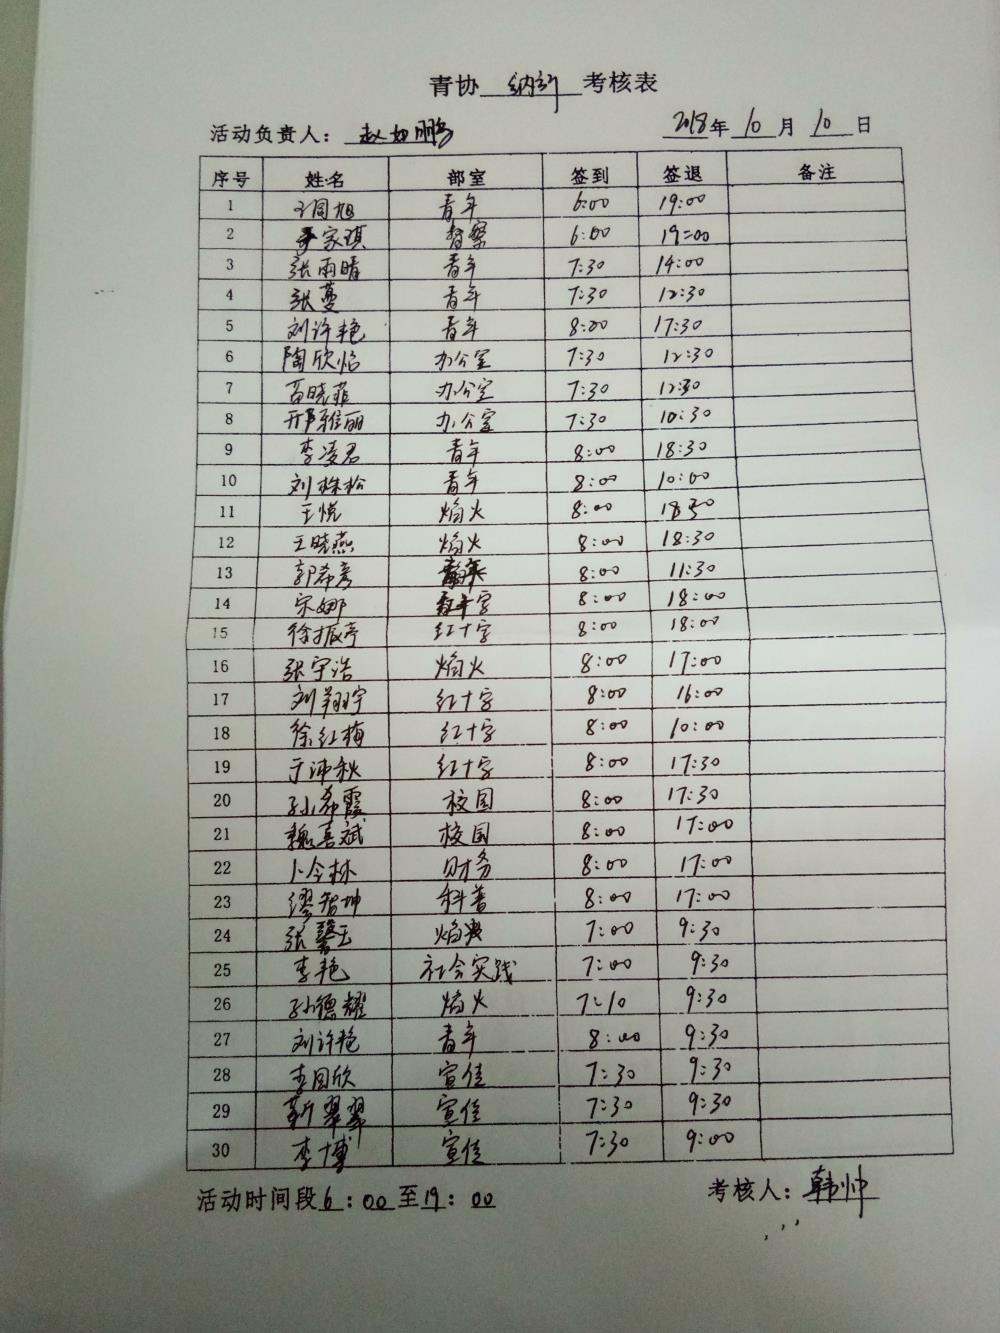 青协 纳新 考核表
活动负责人： 赵如鹏 2018年 10 月 10 日
序号 姓名 部室 签到 签退 备注
1 王同旭 青年 6:00 19:00
2 家琪 督察 6:00 19:00
3 张雨晴 青年 7:30 14:00
4 张蔓 青年 7:30 12:30
5 刘许艳 青年 8:00 17:30
6 陶欣怡 办公室 7:30 12:30
7 苗晓菲 办公室 7:30 12:30
8 邢雅丽 办公室 7:30 10:30
9 李凌君 青年 8:00 18:30
10 刘株松 青年 8:00 10:00
11 王悦 焰火 8:00 18:30
12 王晓燕 焰火 8:00 18:30
13 郭希彦 8:00 11:30
14 宋娜 红十字 8:00 18:00
15 徐振亭 红十字 8:00 18:00
16 张宇浩 焰火 8:00 17:00
17 刘翔宇 红十字 8:00 16:00
18 徐红梅 红十字 8:00 10:00
19 于沛秋 红十字 8:00 17:30
20 孙希霞 校园 8:00 17:30
21 魏喜斌 校园 8:00 17:00
22 卜令林 财务 8:00 17:00
23 缪智坤 科普 8:00 17:00
24 张馨玉 焰火 7:00 9:30
25 李艳 社会实践 7:00 9:30
26 孙德耀 焰火 7:10 9:30
27 刘许艳 青年 8:00 9:30
28 李国欣 宣传 7:30 9:30
29 靳翠翠 宣传 7:30 9:30
30 李博 宣传 7:30 9:00
活动时间段6：00至19：00 考核人：韩帅